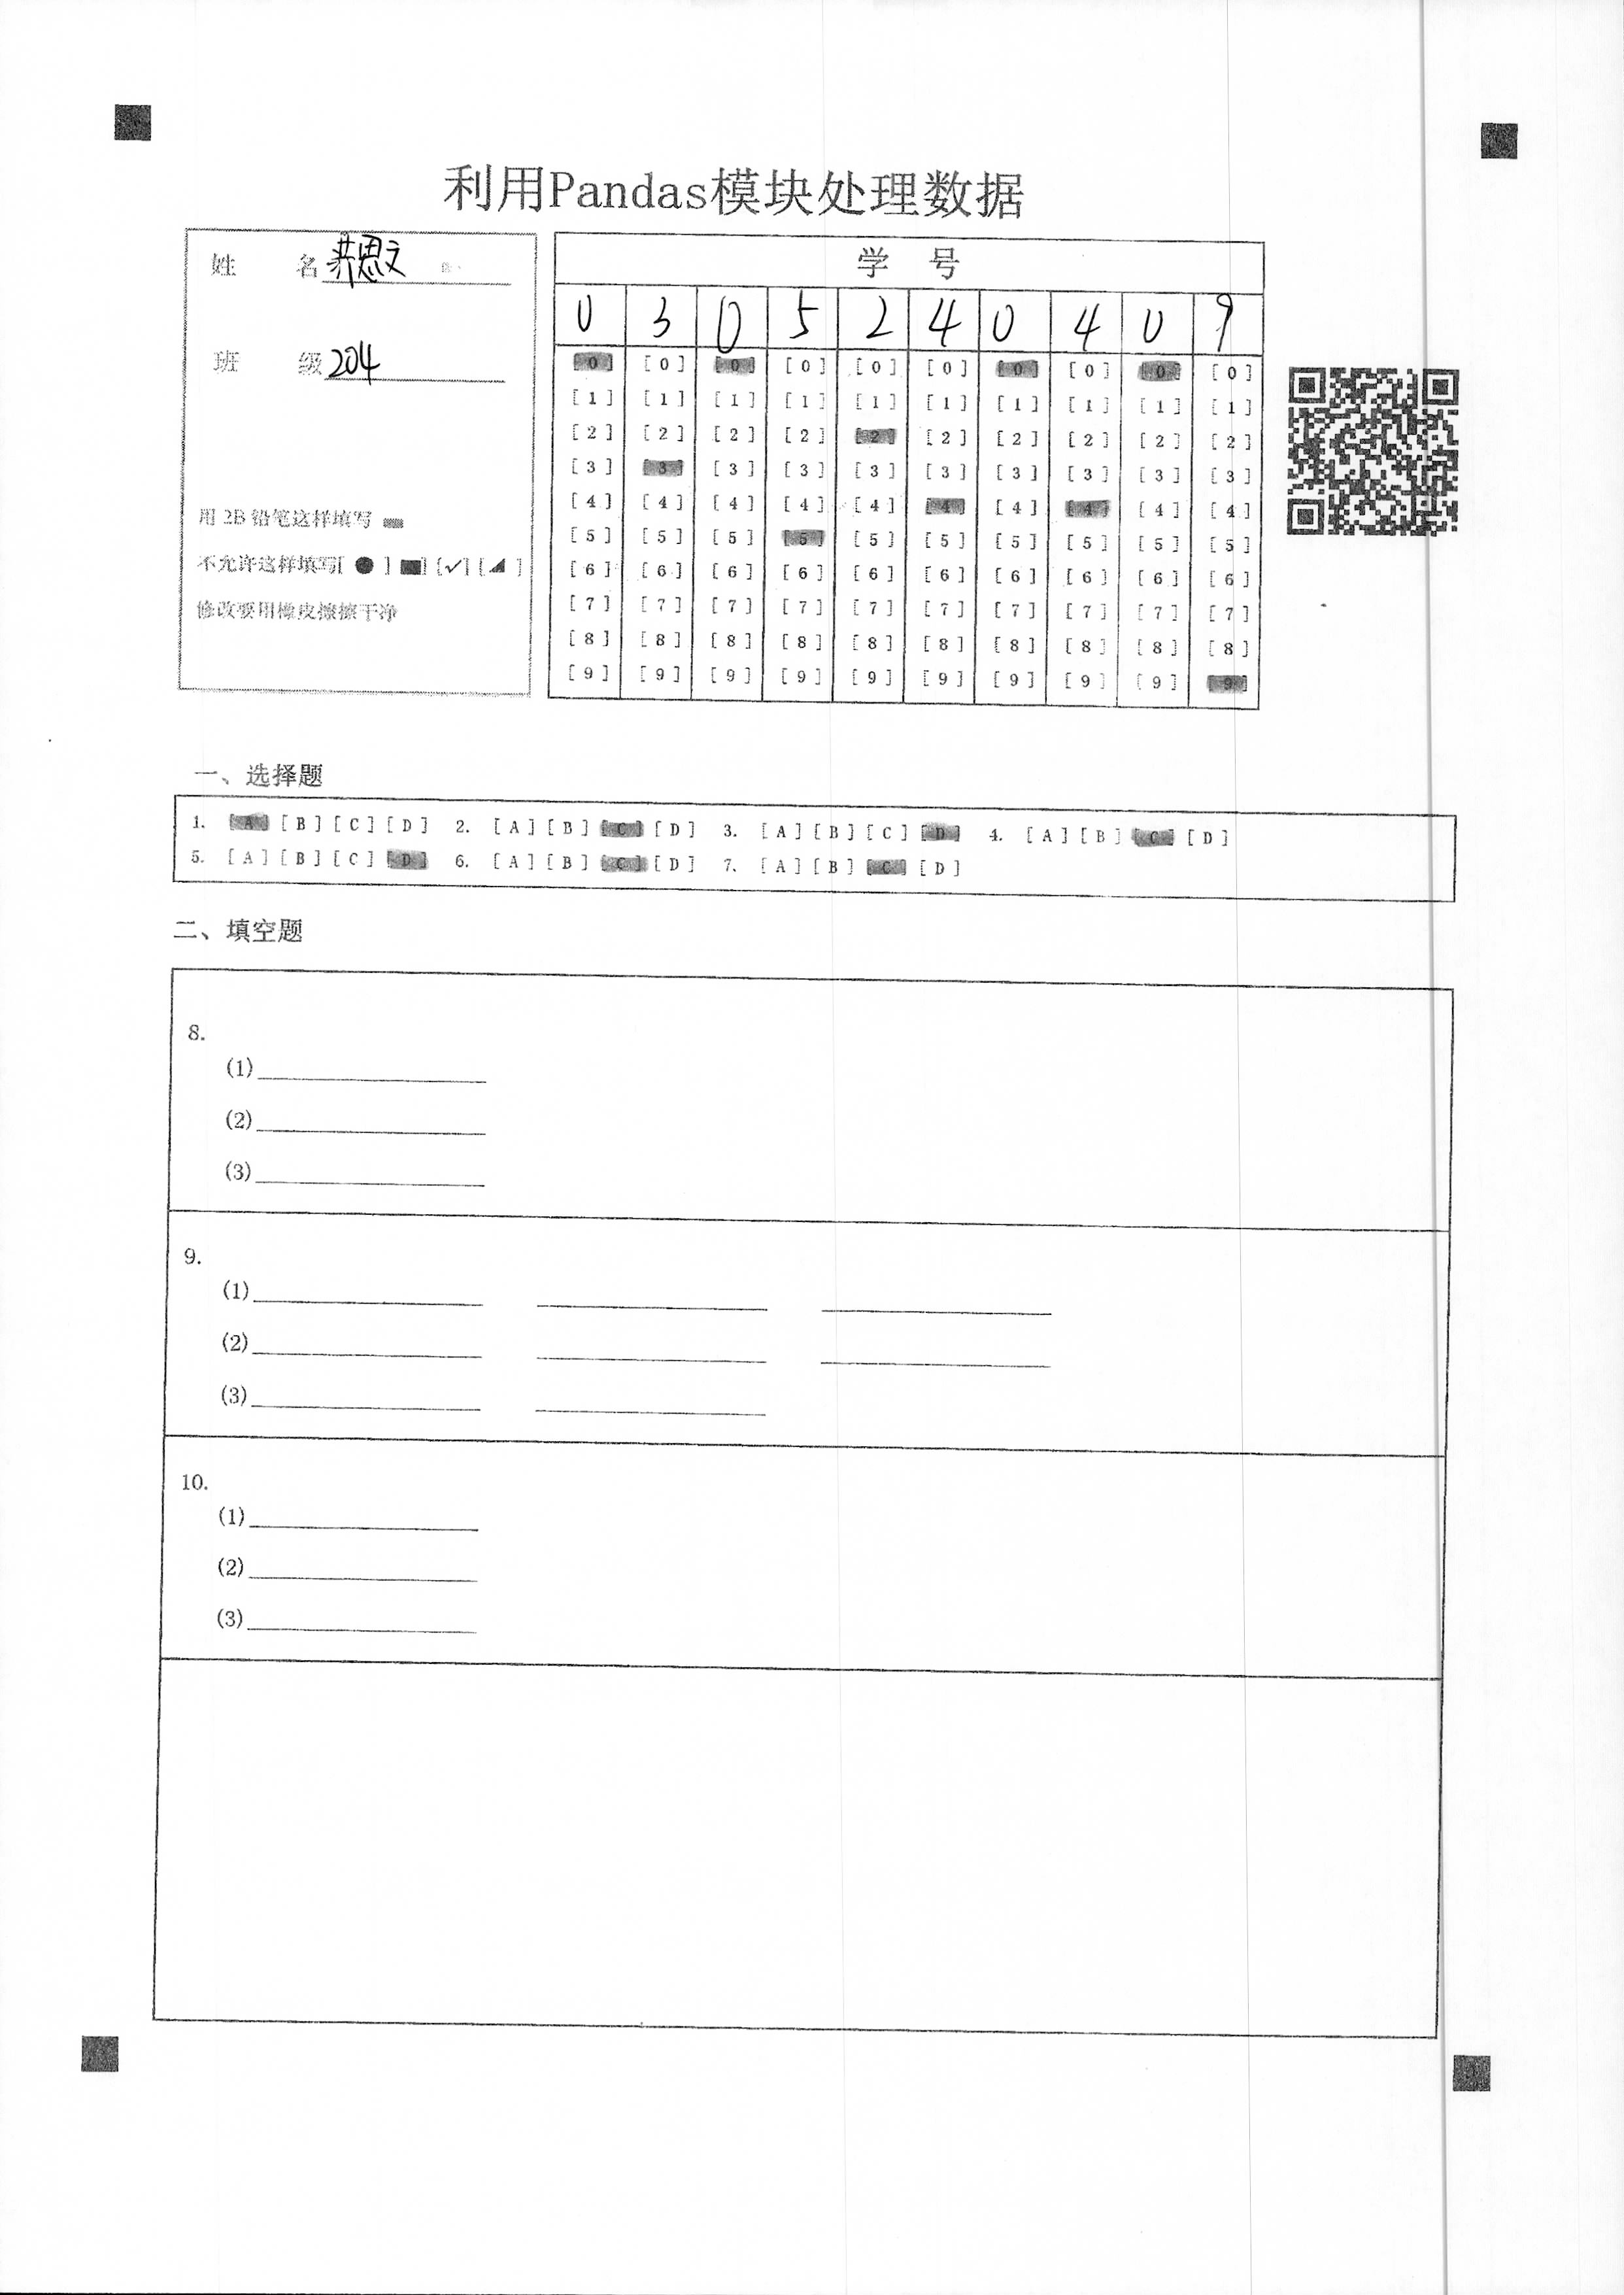 利用Pandas模块处理数据
姓 名 思文
班 级 204
用 2B 铅笔这样填写
不允许这样填写[ ● ] [■] [✓] [◢ ]
修改要用橡皮擦擦干净
学 号
0 3 0 5 2 4 0 4 0 9
[0] [0] [0] [0] [0] [0] [0] [0] [0] [0]
[1] [1] [1] [1] [1] [1] [1] [1] [1] [1]
[2] [2] [2] [2] [2] [2] [2] [2] [2] [2]
[3] [3] [3] [3] [3] [3] [3] [3] [3] [3]
[4] [4] [4] [4] [4] [4] [4] [4] [4] [4]
[5] [5] [5] [5] [5] [5] [5] [5] [5] [5]
[6] [6] [6] [6] [6] [6] [6] [6] [6] [6]
[7] [7] [7] [7] [7] [7] [7] [7] [7] [7]
[8] [8] [8] [8] [8] [8] [8] [8] [8] [8]
[9] [9] [9] [9] [9] [9] [9] [9] [9] [9]
一、选择题
1. [A] [B] [C] [D] 2. [A] [B] [C] [D] 3. [A] [B] [C] [D] 4. [A] [B] [C] [D]
5. [A] [B] [C] [D] 6. [A] [B] [C] [D] 7. [A] [B] [C] [D]
二、填空题
8.
(1)
(2)
(3)
9.
(1)
(2)
(3)
10.
(1)
(2)
(3)